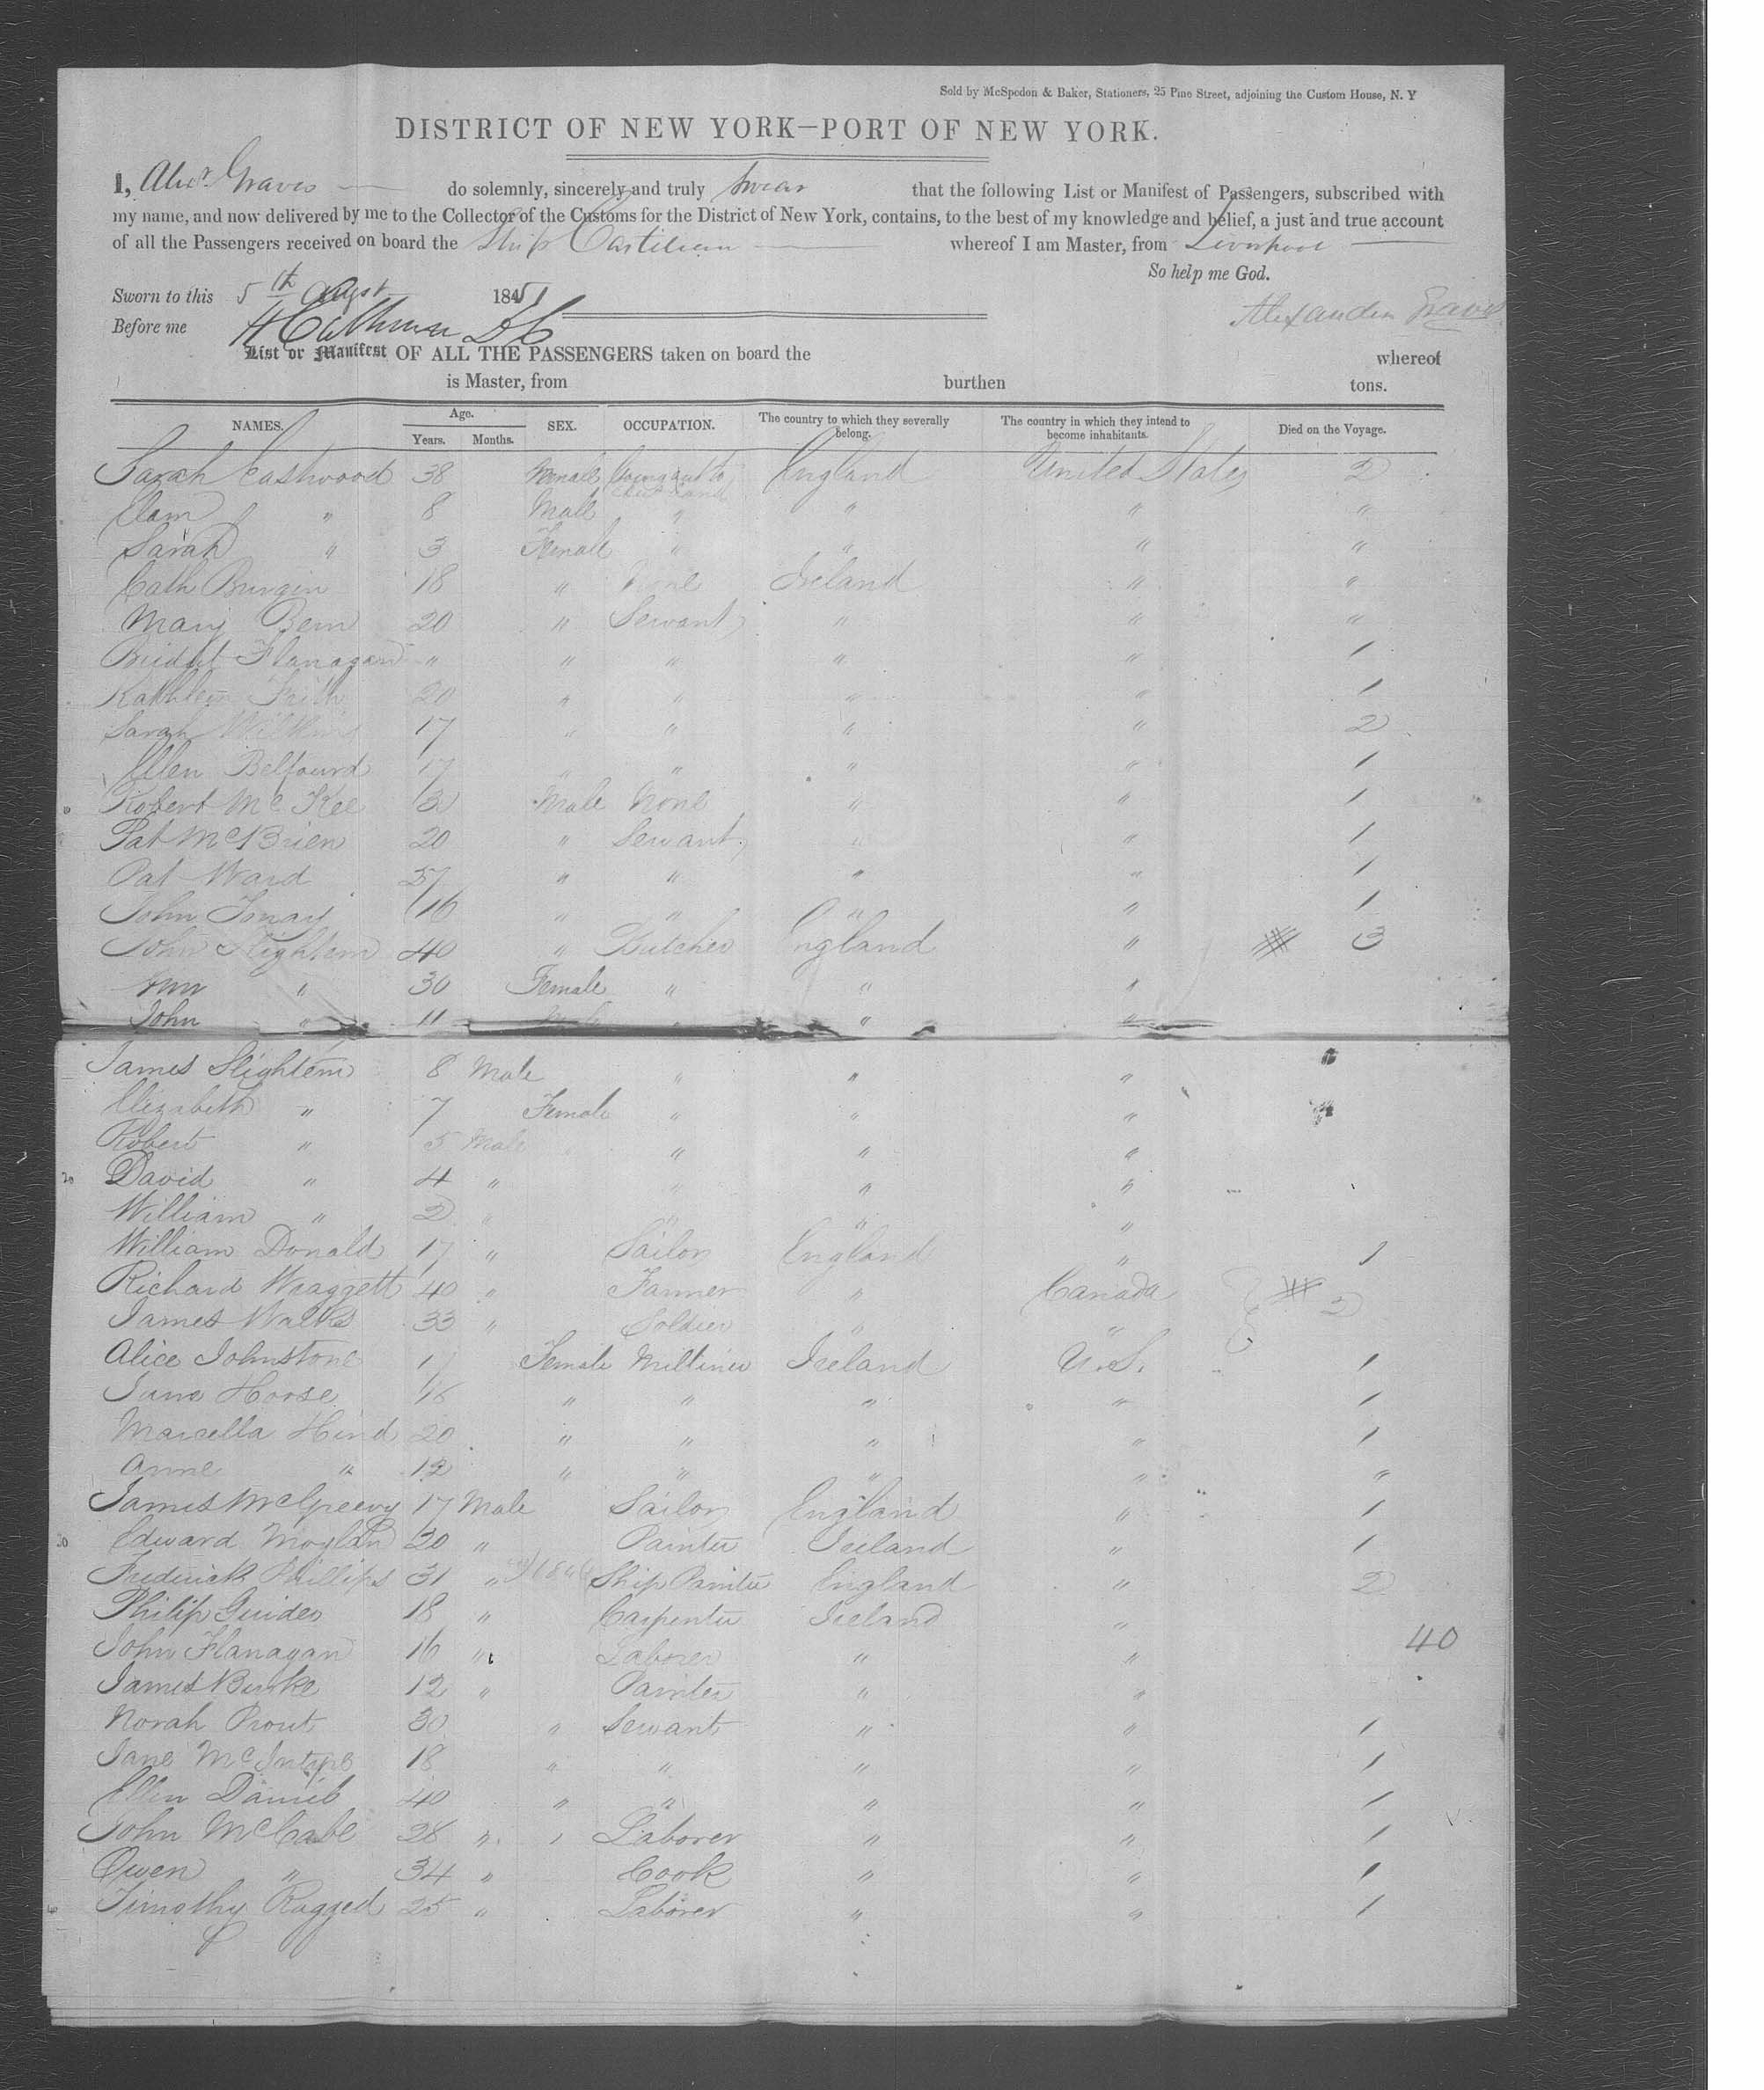 Sold by McSpedon & Baker, Stationers, 25 Pine Street, adjoining the Custom House, N. Y
DISTRICT OF NEW YORK—PORT OF NEW YORK.
I, Alexr Graves do solemnly, sincerely and truly swear that the following List or Manifest of Passengers, subscribed with
my name, and now delivered by me to the Collector of the Customs for the District of New York, contains, to the best of my knowledge and belief, a just and true account
of all the Passengers received on board the Ship Castilian whereof I am Master, from Liverpool
So help me God.
Sworn to this 5th Augst 1851
Alexander Graves
Before me
List or Manifest OF ALL THE PASSENGERS taken on board the whereof
is Master, from burthen tons.
NAMES. Age. Years. Months. SEX. OCCUPATION. The country to which they severally belong. The country in which they intend to become inhabitants. Died on the Voyage.
Sarah Eastwood 38 Female Going out to England United States 2
Elam " 8 Male " " " "
Sarah " 3 Female " " " "
Cath 18 " None Ireland " "
Mary 20 " Servant " " "
Bridget Flanagan " " " " " 1
Kathleen 20 " " " " 1
Sarah 17 " " " " 2
Ellen Belfourd 17 " " " " 1
Robert McKee Male None " " 1
Pat McBrien 20 " Servant " " 1
Pat Ward " " " " 1
John 16 " " " " 1
John Slightem 40 " Butcher England " 3
Ann " 30 Female " " "
John " 11 Male " "
James Slightem 8 Male " " "
Elizabeth " 7 Female " " "
Robert " 5 Male " " "
David " 4 " " "
William " 2 " " " "
William Donald 17 " Sailor England " 1
Richard Waggett 40 " Farmer " Canada 2
James 33 " Soldier " "
Alice Johnstone 17 Female Milliner Ireland U.S. 1
Jane Hoose " " " " 1
Marcella Hind 20 " " " " 1
Anne " 12 " " " " "
James McGreevy 17 Male Sailor England " 1
Edward Moylan 20 " Painter Ireland " 1
Frederick Phillips 31 " Ship Painter England " 2
Philip Guider 18 " Carpenter Ireland "
40
John Flanagan 16 " Laborer " "
James Burke 12 " Painter " "
Norah Prout 30 " Servant " " 1
Jane McIntyre 18 " " " " 1
Ellen Daniel 40 " " " " 1
John McCabe 28 " Laborer " " 1
Owen " 34 " Cook " " 1
Timothy Ragged 25 " Laborer " " 1